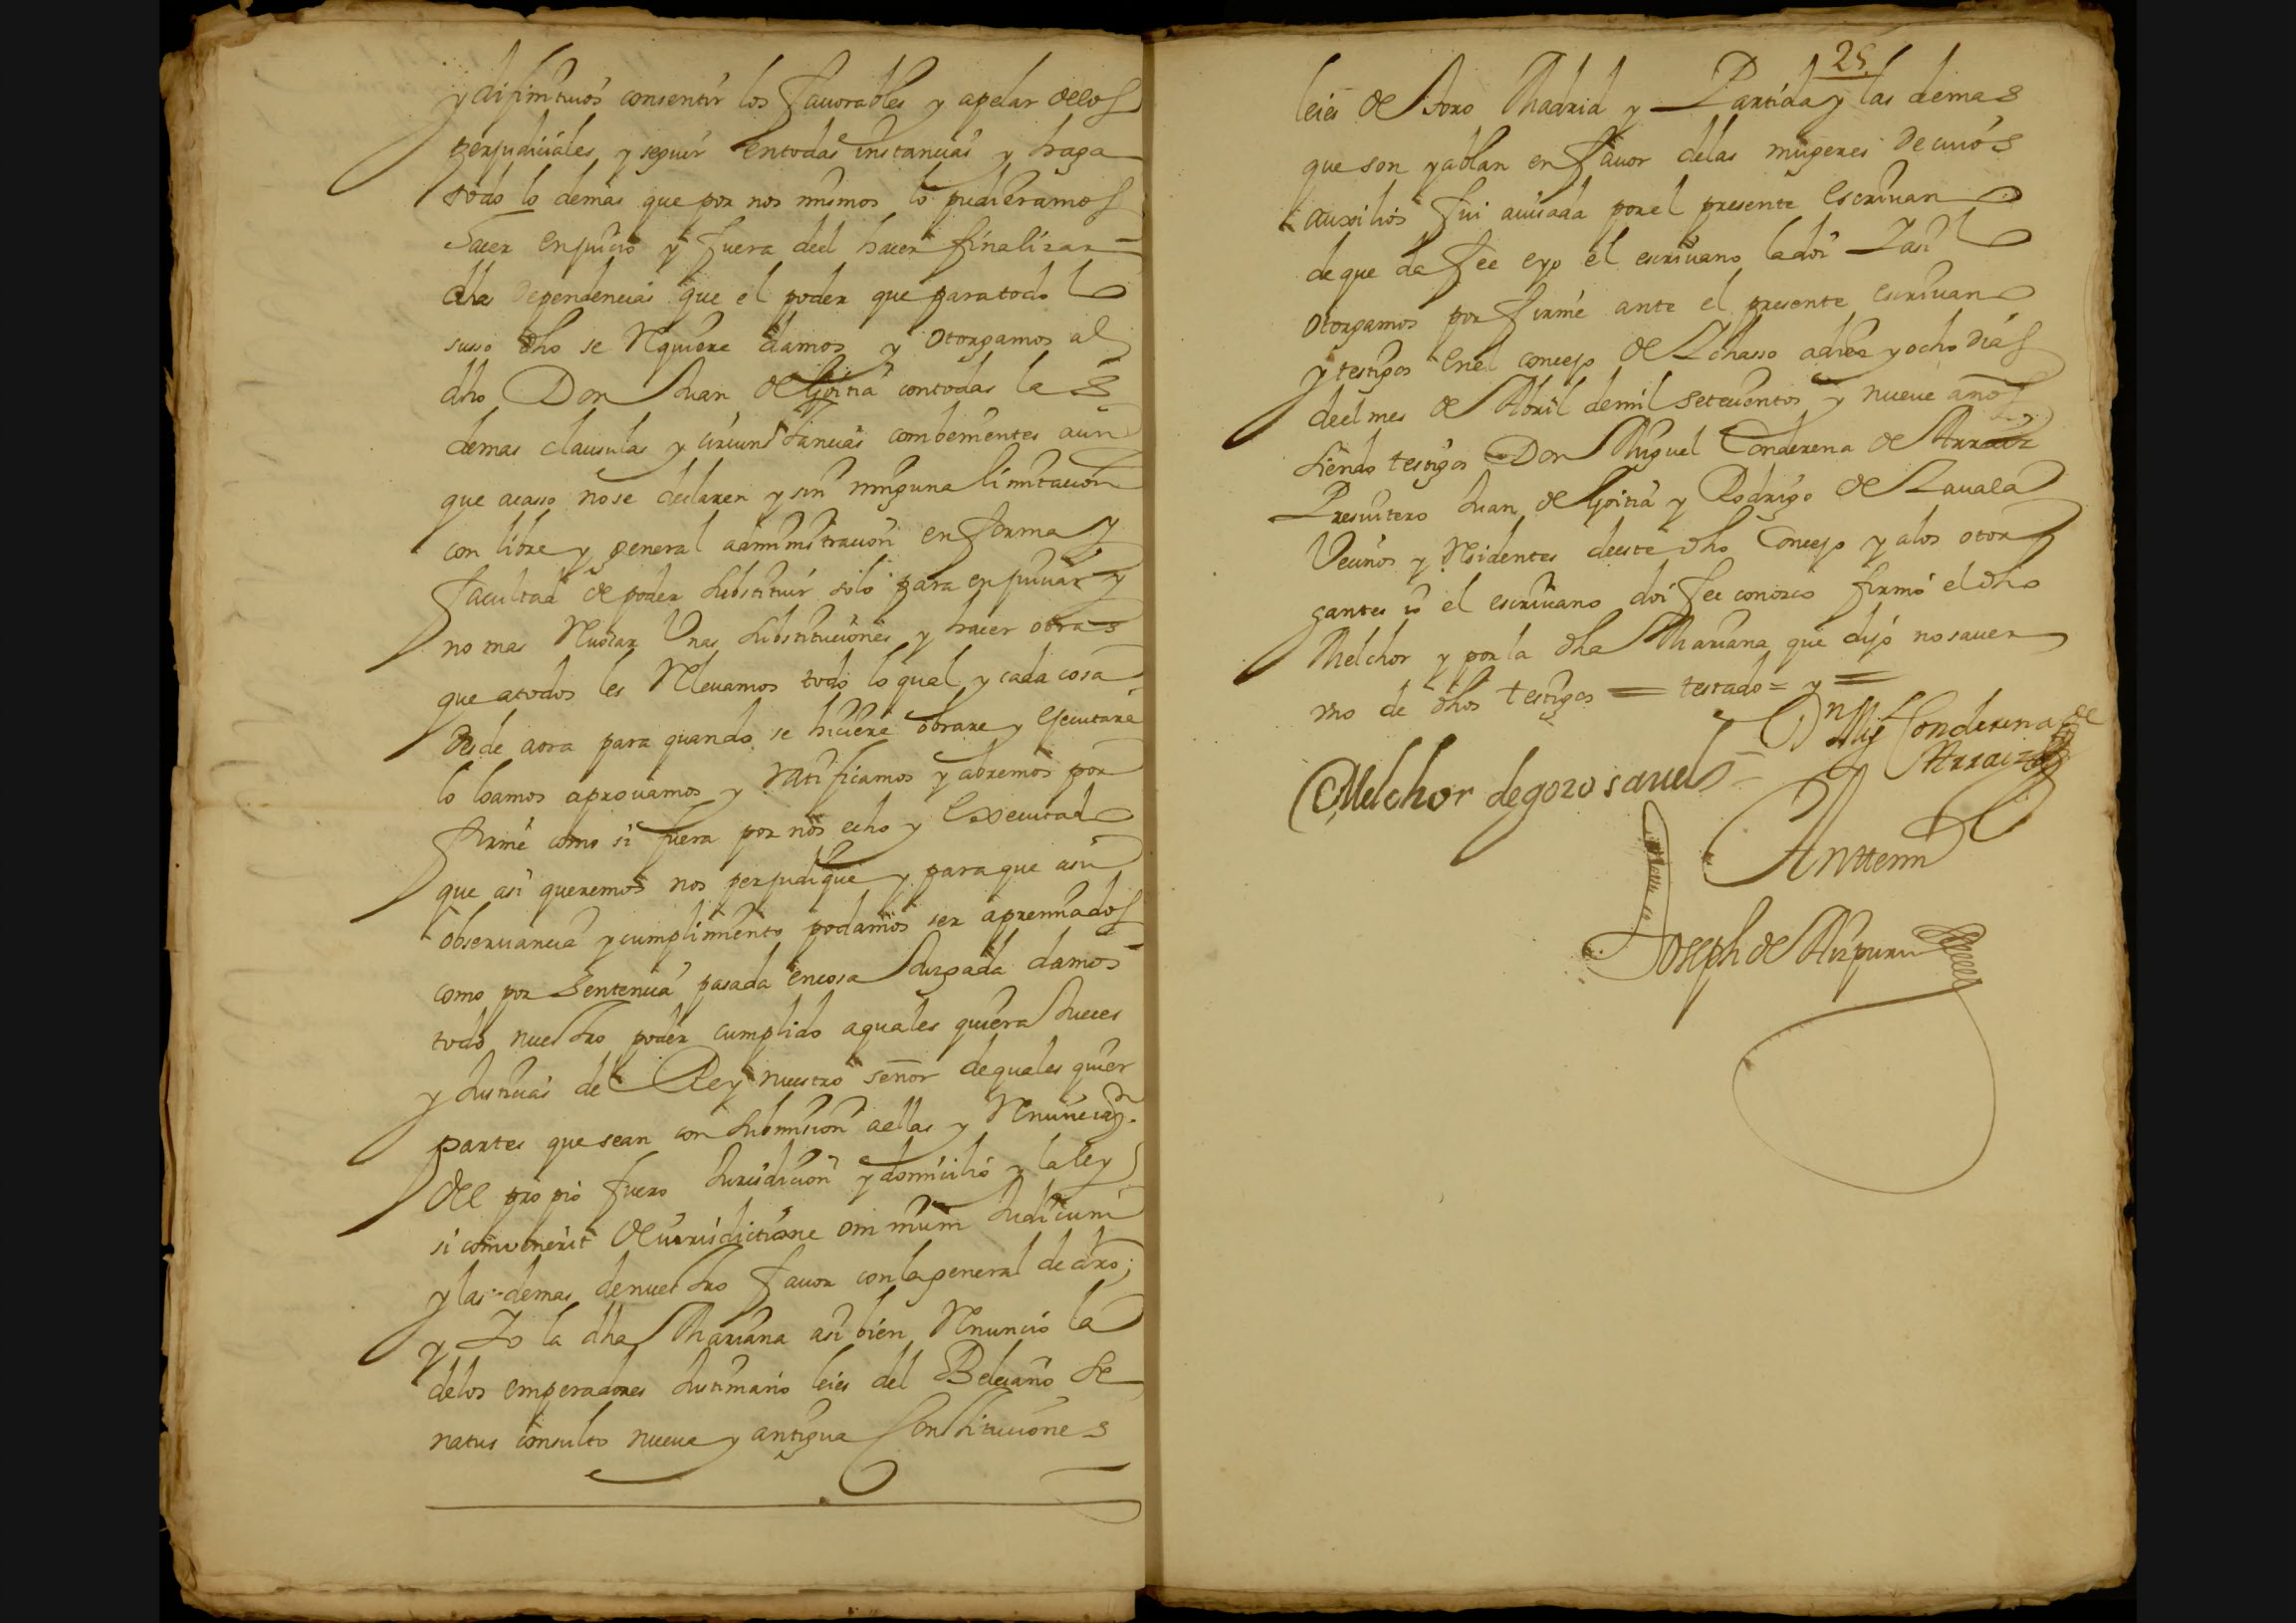 y difinitiuos consentir los fauorables y apelar dellos
perjudiciales y seguir entodas instancias y haga
todo lo demas que por nos mismos lo pudieramos
hacer enjuicio y fuera deel hacer finalizar
dhas dependencias que el poder que paratodo lo
suso dho se Requiere damos y otorgamos al
dho Don Juan de Goitia contodas las
demas clausulas y circunstancias combenientes aun
que acaso nose declaren y sin ninguna limitacion
con libre y general administracion enforma y
facultad de poder substituir solo para enjuiciar y
no mas Reuocar Unas substituciones y hacer otras
que atodos les Releuamos todo lo qual y cada cosa
desde aora para quando se hiciere obrare y ejecutare
lo loamos aprouamos y Ratificamos y abremos por
firme como si fuera por nos echo y executado
que asi queremos nos perjudique y paraque asu
obseruancia y cumplimiento podamos ser apremiados
como por sentencia pasada encosa Juzgada damos
todo nuestro poder cumplido aquales quiera Jueces
y Justicias del Rey nuestro señor dequales quier
partes que sean con submision aellas y Renunciazn.
del propio fuero Jurisdicion y domicilio y la ley
si conuenerit de iurisdictione omnium Judicum
y las demas denuestro fauor con la general de dro;
y Io la dha Mariana asi bien Renuncio la
delos emperadores Justiniano leies del Beleiano Se
natus consulto nueua y antigua Constituciones
25
leies de toro Madrid y Partida y las demas
que son y ablan en fauor delas mugeres de cuios
auxilios fui auisada por el presente escriuano
de que da fee eyo el escriuano la doi Iasi lo
otorgamos por firme ante el presente escriuano
y testigos enel concejo de Lchasso adiez y ocho dias
deel mes de Abril demil setecientos y nueue años
siendo testigos Don Miguel Conderena de Arraiz
Presuitero Juan de Goitia y Rodrigo de Lauala
Vecinos y Residentes deeste dho Concejo y alos otor
gantes io el escriuano doi fee conozco firmo el dho
Melchor y por la dha Mariana que dijo nosauer
vno de dhos testigos = testado = y =
Dn Migl Conderena de
Arraiz
Melchor degorosauel
Anttemi
Joseph de Aizpuru